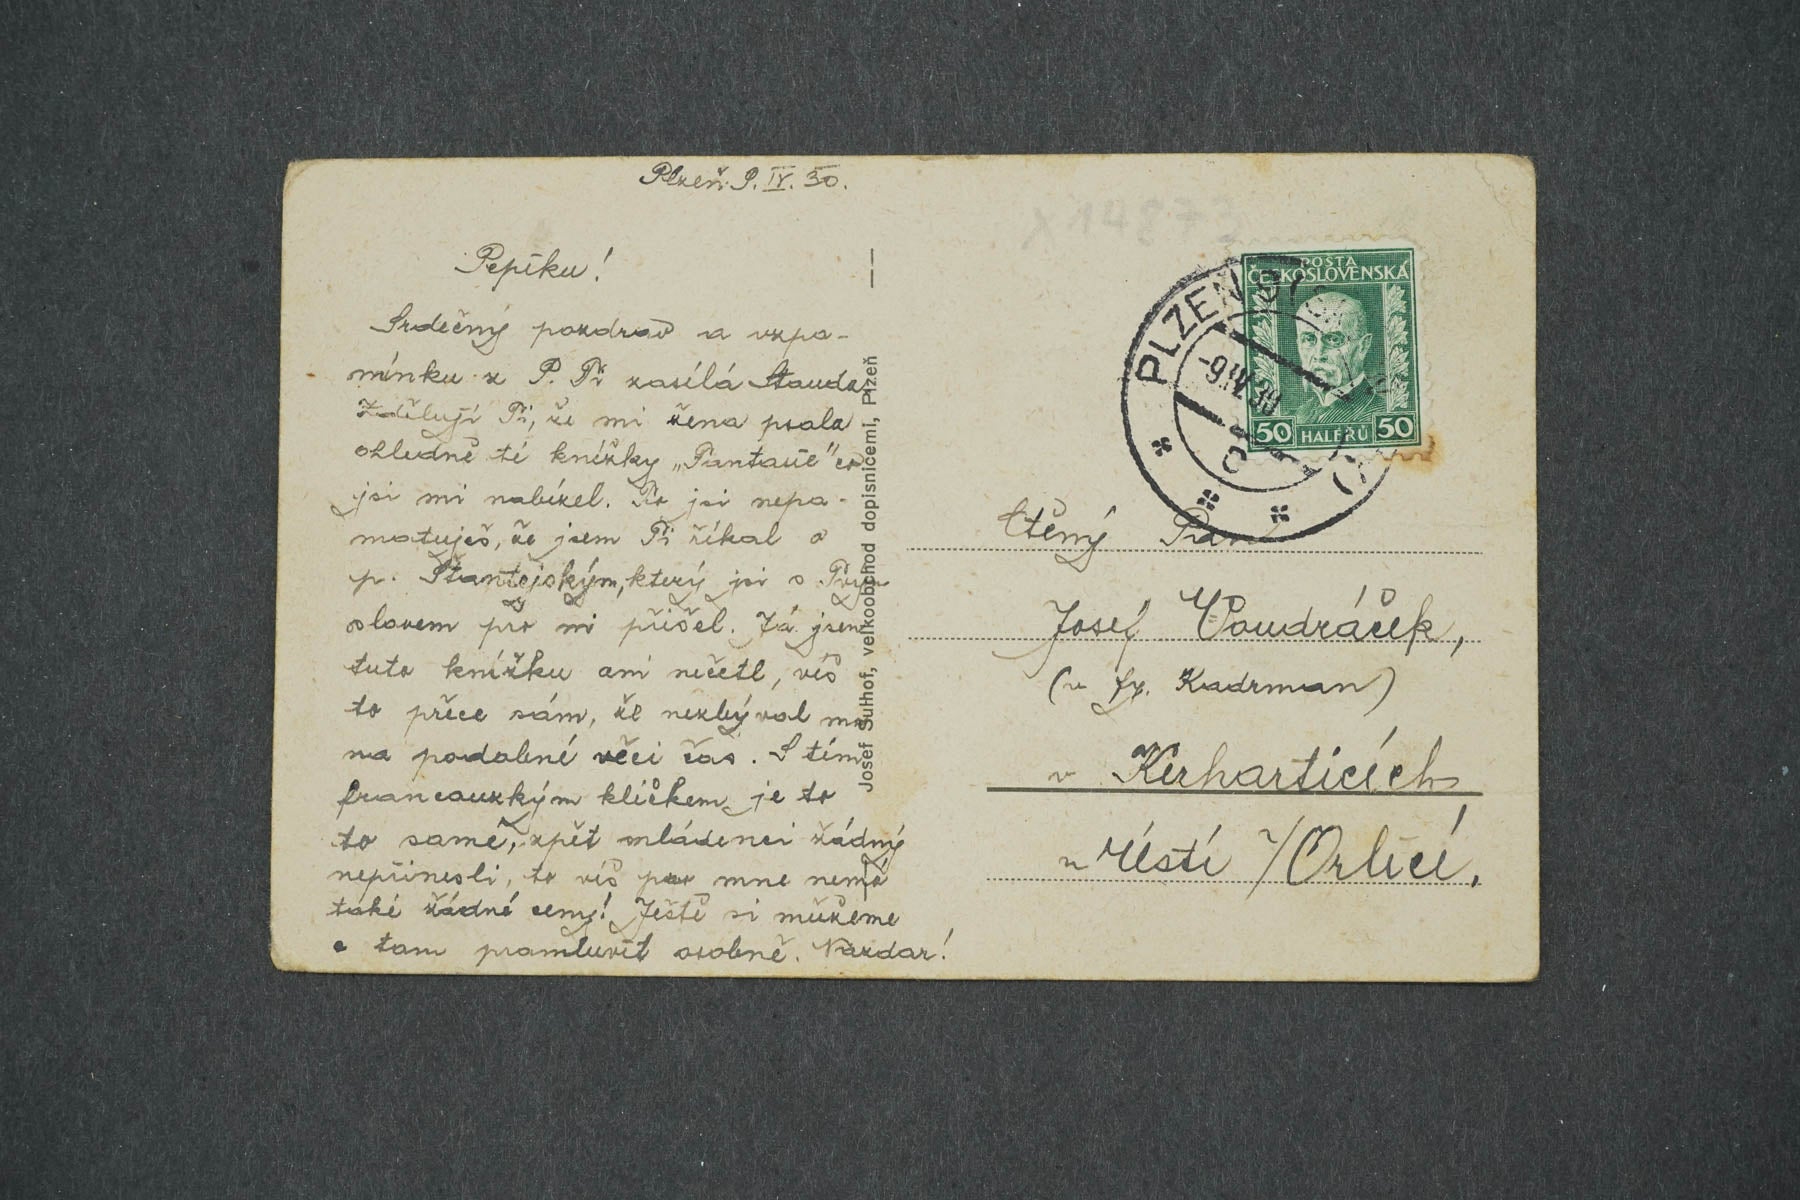 Plzeň 9. IV. 30.
Pepíku!
Srdečný pozdrav a vzpo-
mínku z P. Ti zasílá Standa
Zděluji Ti, že mi žena psala
ohledně té knížky „
jsi mi nabízel. To jsi nepa-
matuješ, že jsem Ti říkal o
p. který jsi s
slovem pro ni přišel. Já jsem
tuto knížku ani nečetl, víš
to přece sám, že nezbýval mě
na podobné věci čas. S tím
francouzkým klíčkem je to
to samé, zpět mládenci žádný
nepřinesli, to víš pro mne nemá
také žádné ceny! Ještě si můžeme
o tom promluvit osobně. Nazdar!
Josef Suhof, velkoobchod dopisnicemi, Plzeň
X 14873
POSTA
ČESKOSLOVENSKÁ
50 HALÉŘŮ 50
PLZEŇ
-9.IV.30
Ctěný Pan
Josef Voudráček,
(u fy. Kadrman)
v Kerharticích
u Ústí /Orlicí.